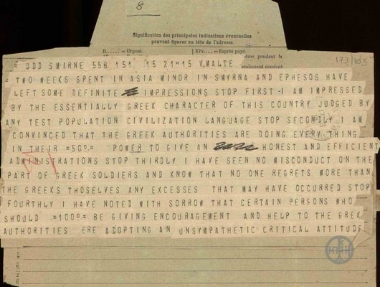 8
Signification des principales indications éventuelles
pouvant figurer en tête de l'adresse.
ODD SMIRNE 558 151 15 21=15 V.MALTE
TWO WEEKS SPENT IN ASIA MINOR IN SMYRNA AND EPHESOS HAVE
LEFT SOME DEFINITE IMPRESSIONS STOP FIRST-I AM IMPRESSED
BY THE ESSENTIALLY GREEK CHARACTER OF THIS COUNTRY JUDGED BY
ANY TEST POPULATION CIVILIZATION LANGUAGE STOP SECONDLY I AM
CONVINCED THAT THE GREEK AUTHORITIES ARE DOING EVERY THING
IN THEIR =50= POWER TO LIVE AN HONEST AND EFFICIENT
STRATIONS STOP THIRDLY I HAVE SEEN NO MISCONDUCT ON THE
PART OF GREEK SOLDIERS AND KNOW THAT NO ONE REGRETS MORE THAN
THE GREEKS THOSELVES ANY EXCESSES THAT MAY HAVE OCCURRED STOP
FOURTHLY I HAVE NOTED WITH SORROW THAT CERTAIN PERSONS WHO
SHOULD =100= BE GIVING ENCOURAGEMENT AND HELP TO THE GREEK
AUTHORITIES ARE ADOPTING AN UNSYMPATHETIC CRITICAL ATTITUDE